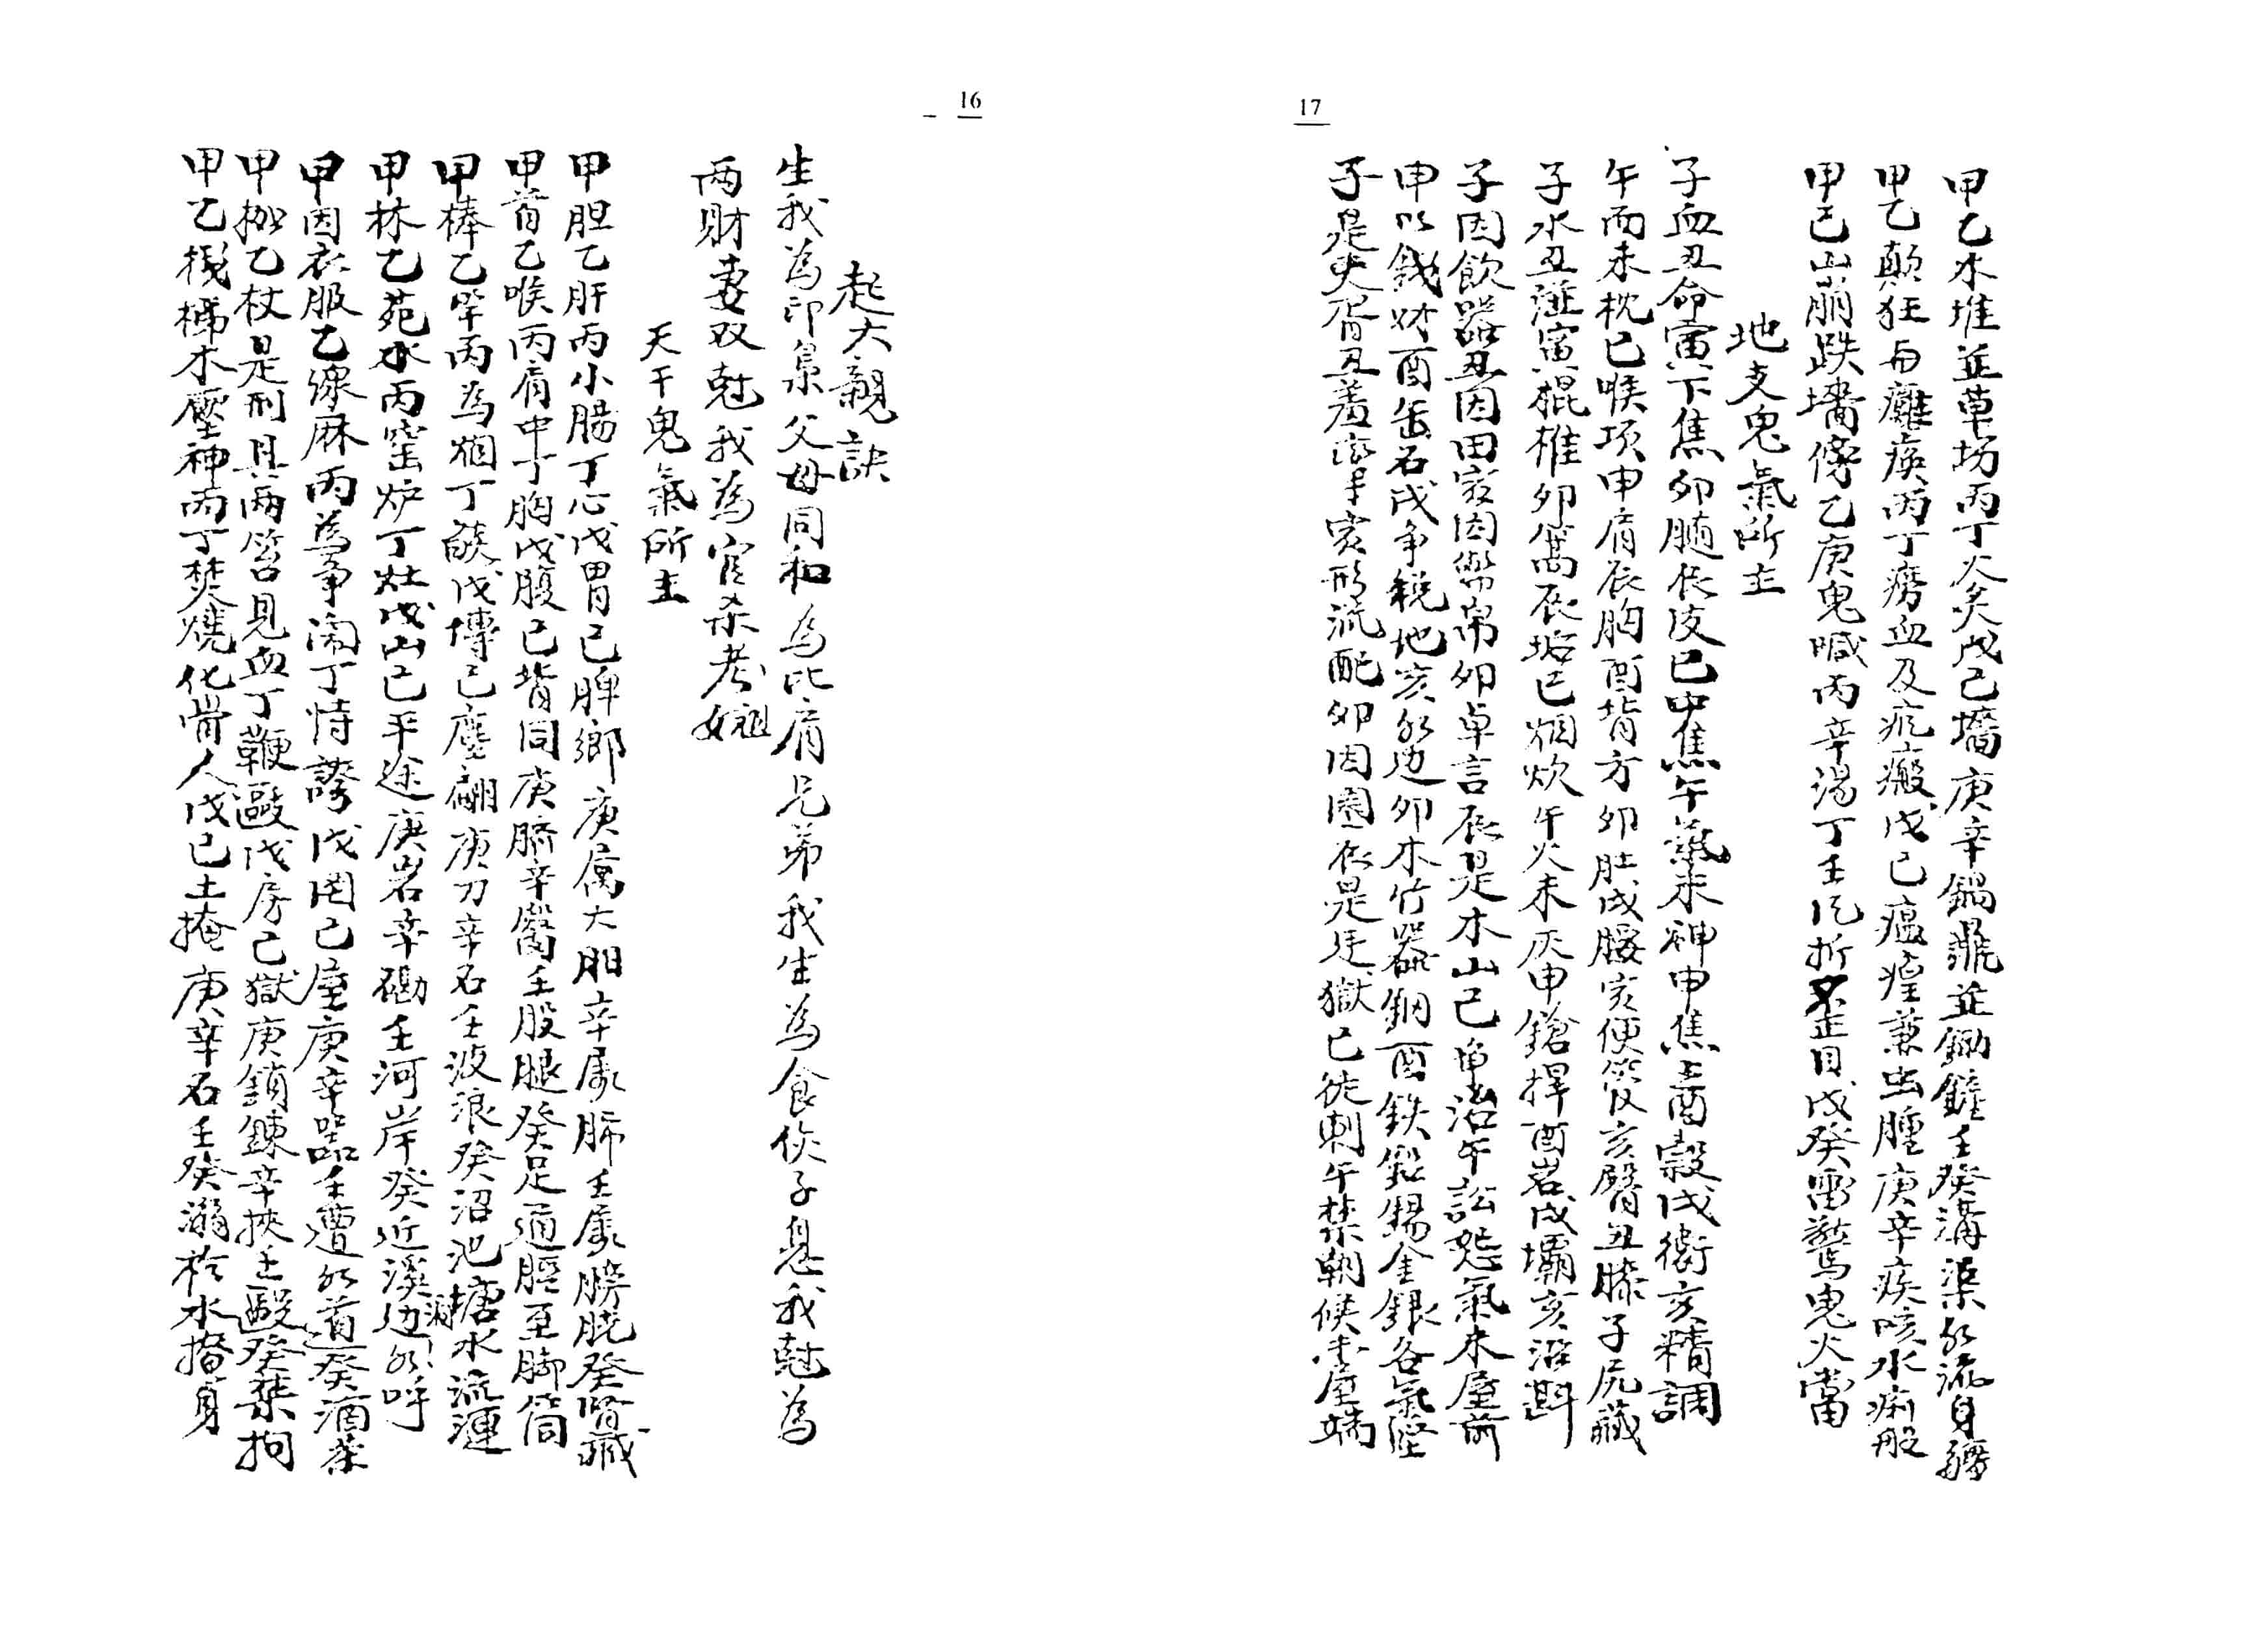 16
起六親訣
生我為印梟父母同和為比肩兄弟我生為食傷子息我尅為
兩財妻双尅我為官杀考妣祖
天干鬼氣所主
甲胆乙肝丙小腸丁心戊胃己脾鄉庚属大腸辛属肺壬属膀胱癸腎臓
甲首乙喉丙肩中丁胸戊腹己背同庚臍辛膺壬股腿癸足通脛至脚筒
甲棒乙竿丙為烟丁燄戊塼己塵翩庚刀辛石壬波浪癸沼池塘水流漣
甲林乙苑水丙窑炉丁灶戊山己平途庚岩辛磡壬河岸癸近溪澗边水呼
甲因衣服乙線麻丙為爭鬧丁恃誇戊因己屋庚辛器壬遭水道癸酒茶
甲枷乙杖是刑具丙笞見血丁鞭毆戊房己獄庚鎖鍊辛挾壬毆癸葉拘
甲乙機梯木壓神丙丁焚燒化骨人戊己土掩庚辛石壬癸溺於水撘身
17
甲乙木堆並草场丙丁火炙戊己墻庚辛鍋鼎並鋤鏟壬癸溝渠水流身
甲乙顛狂与癱痪丙丁痨血及疮瘢戊己瘟瘴兼虫腫庚辛疾咳水痢般
甲己山崩跌墻傍乙庚鬼喊丙辛湯丁壬折歪目戊癸雷驚鬼火當
地支鬼氣所主
子血丑命寅下焦卯髓辰皮巳中焦午氣未神申焦上酉榖戌衛亥精調
午面未枕巳喉项申肩辰胸酉背方卯肚戌腰亥便亥臂丑膝子尻藏
子水丑寅棍椎卯篙辰巳烟炊午火未灰申鎗捍酉岩戌壩亥沿
子因飲器丑因田寅因幣帛卯卓言辰是木山己午訟怨氣未屋前
申以錢财酉缶石戌争税地亥水边卯木竹器申酉鉄鉛錫金銀各氣
子是丑羞寅形流配卯因園辰是獄巳徒刺午禁朝候未屋端